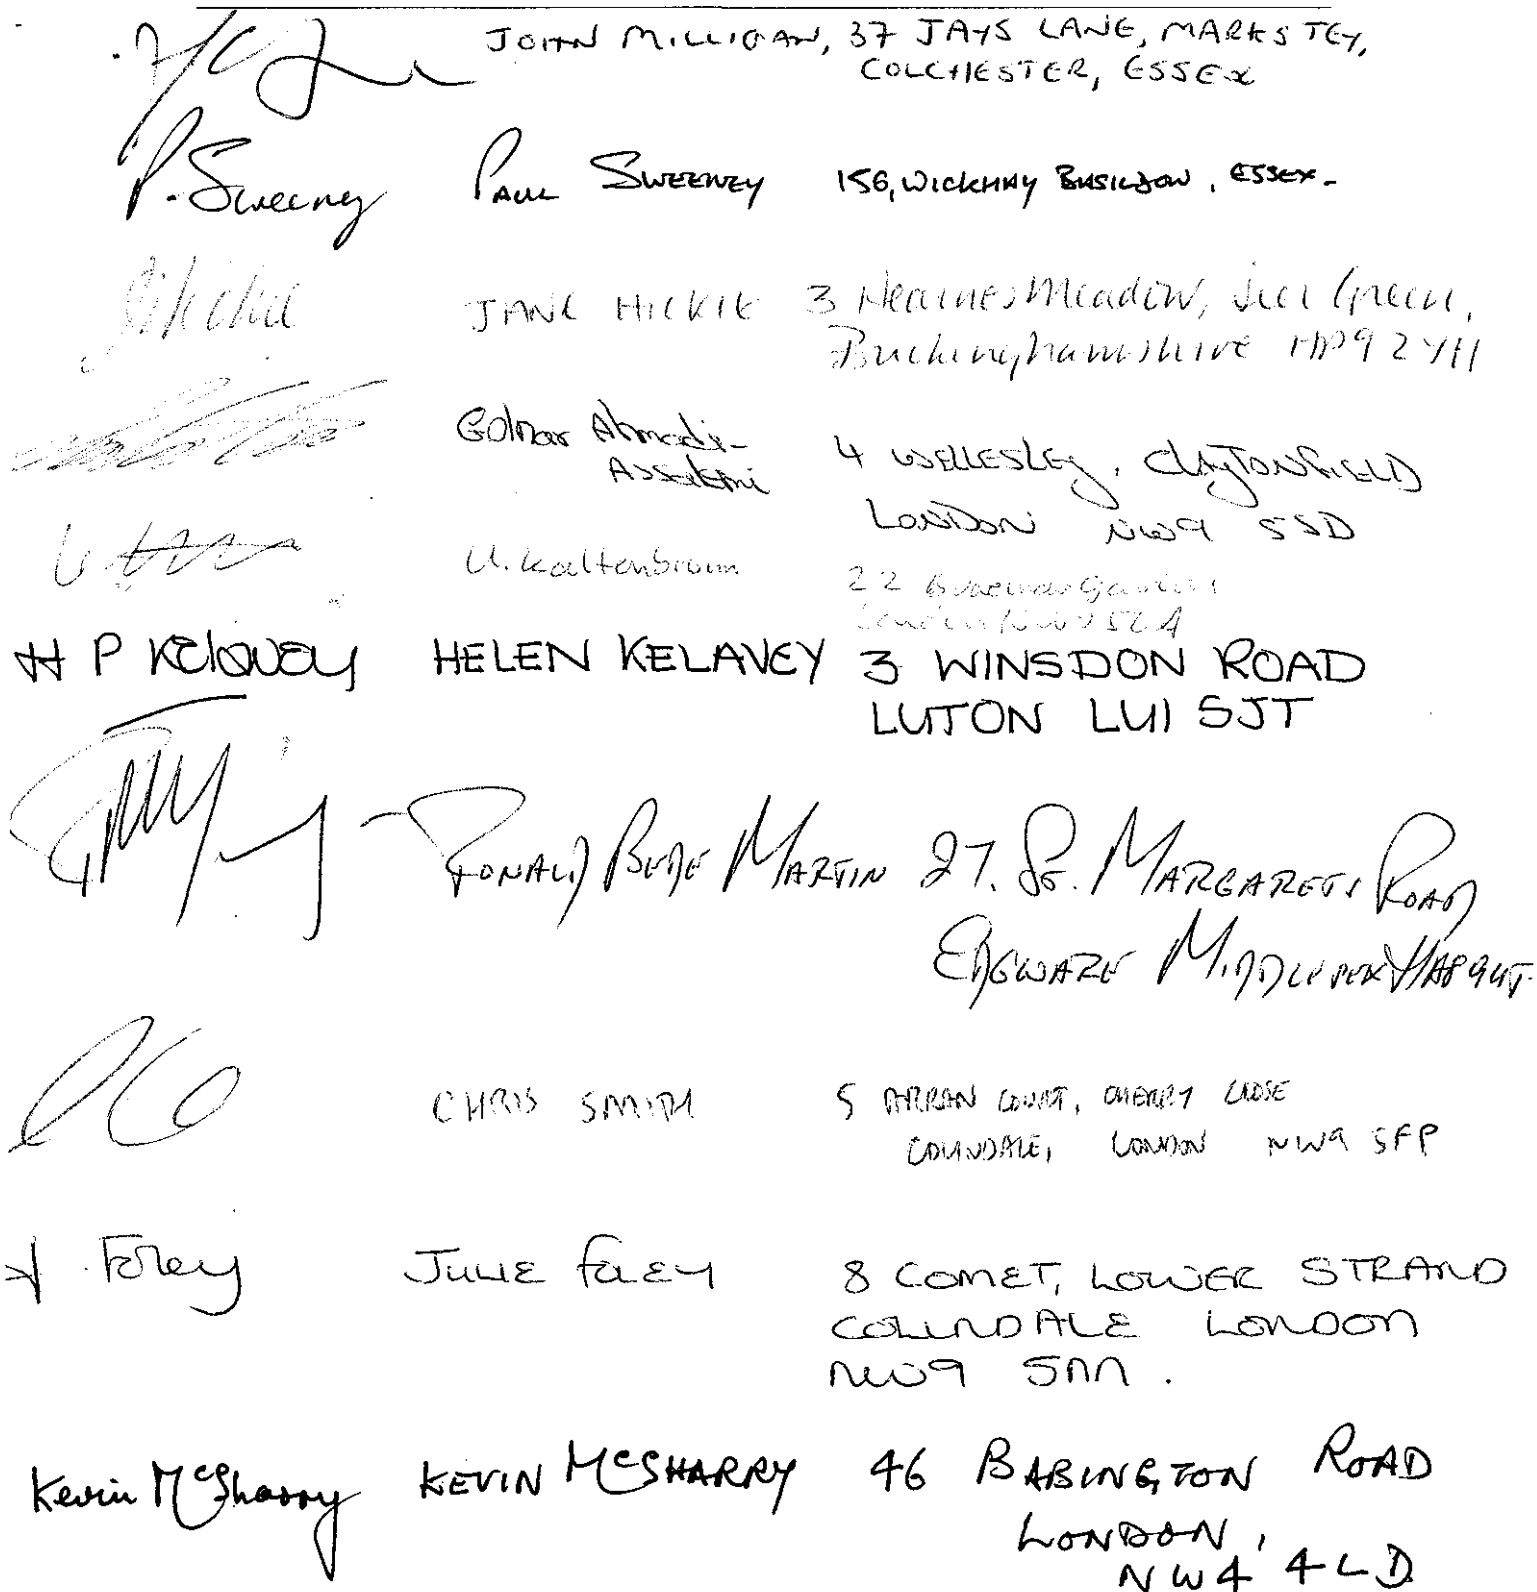 JOHN MILLIGAN, 37 JAYS LANE, MARKS TEY,
COLCHESTER, ESSEX
P. Sweeney PAUL SWEENEY 156, WICKHAY BASILDON, ESSEX-
JANE HICKIE 3 Hearnes Meadow, Seer Green,
Buckinghamshire HP9 2YH
Golnar Ahmadi-
ASSALEMI
4 WELLESLEY, CLAYTONFIELD
LONDON NW9 5SD
U. Kaltenbrunn 22 Braemar Gardens
London
H P Kelavey HELEN KELAVEY 3 WINSDON ROAD
LUTON LU1 5JT
RONALD BEDE MARTIN 27. ST. MARGARETS ROAD
EDGWARE MIDDLESEX HA8 9UT.
CHRIS SMITH 5 ARRAN COURT, CHERRY CLOSE
COLINDALE, LONDON NW9 5FP
J Foley JULIE FOLEY 8 COMET, LOWER STRAND
COLINDALE LONDON
NW9 5NN.
Kevin McSharry KEVIN McSHARRY 46 BABINGTON ROAD
LONDON,
NW4 4LD